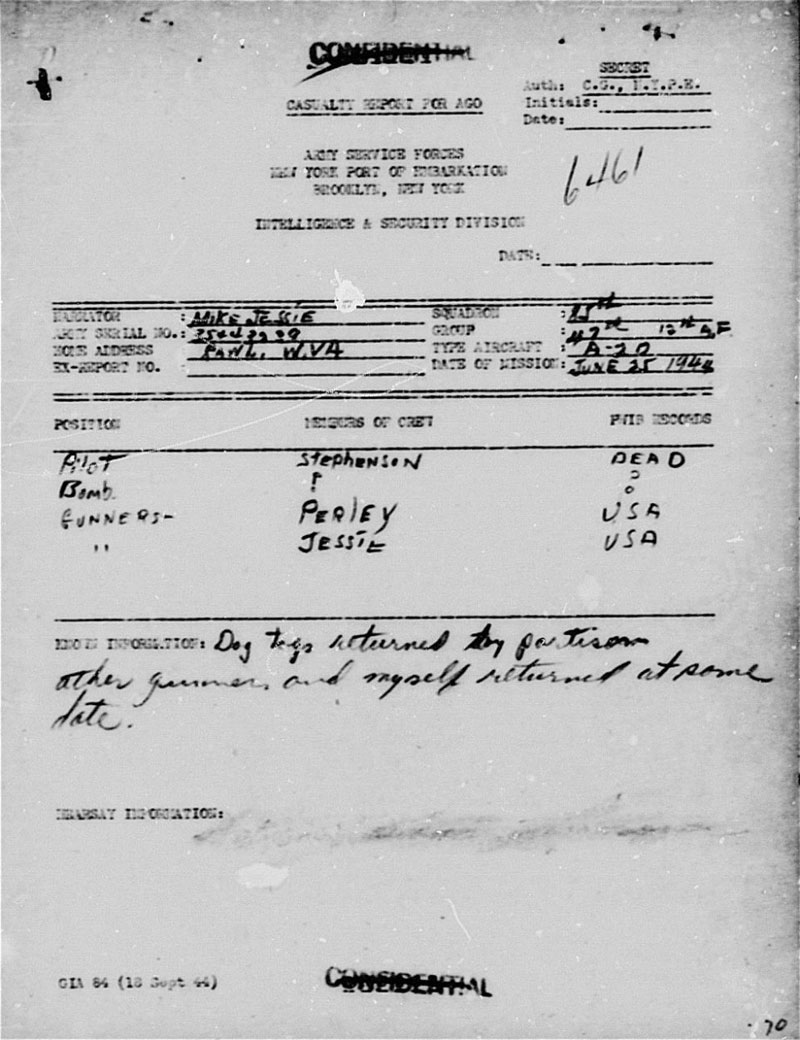 CONFIDENTIAL
SECRET
Auth: C.G., N.Y.P.E.
CASUALTY REPORT FOR AGO
Initials:
Date:
ARMY SERVICE FORCES
NEW YORK PORT OF EMBARKATION
BROOKLYN, NEW YORK
6461
INTELLIGENCE & SECURITY DIVISION
DATE:
NARRATOR : MIKE JESSIE SQUADRON : 85th
ARMY SERIAL NO.: GROUP : 47th 12th A.F
HOME ADDRESS W.VA TYPE AIRCRAFT : A-20
EX-REPORT NO. : DATE OF MISSION: JUNE 25 1944
POSITION MEMBERS OF CREW PWIB RECORDS
Pilot Stephenson DEAD
Bomb. ? ?
GUNNERS- PERLEY USA
" JESSIE USA
KNOWN INFORMATION: Dog tags returned by partisan
other gunner and myself returned at same
date.
HEARSAY INFORMATION:
GIA 84 (18 Sept 44)
CONFIDENTIAL
70